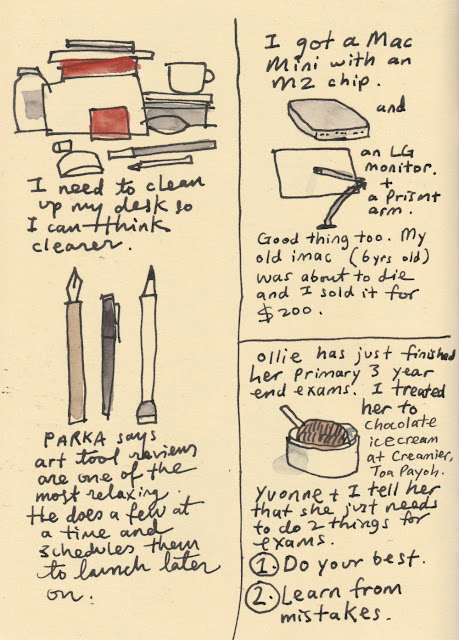 I need to clean
up my desk so
I can think
clearer.
PARKA says
art tool reviews
are one of the
most relaxing.
He does a few at
a time and
schedules them
to launch later
on.
I got a Mac
Mini with an
M2 chip.
and
an LG
monitor.
+
a Prismt
arm.
Good thing too. My
old imac (6yrs old)
was about to die
and I sold it for
$200.
Ollie has just finished
her Primary 3 year
end exams. I treated
her to
chocolate
icecream
at Creamier,
Toa Payoh.
Yvonne + I tell her
that she just needs
to do 2 things for
exams.
1. Do your best.
2. Learn from
mistakes.